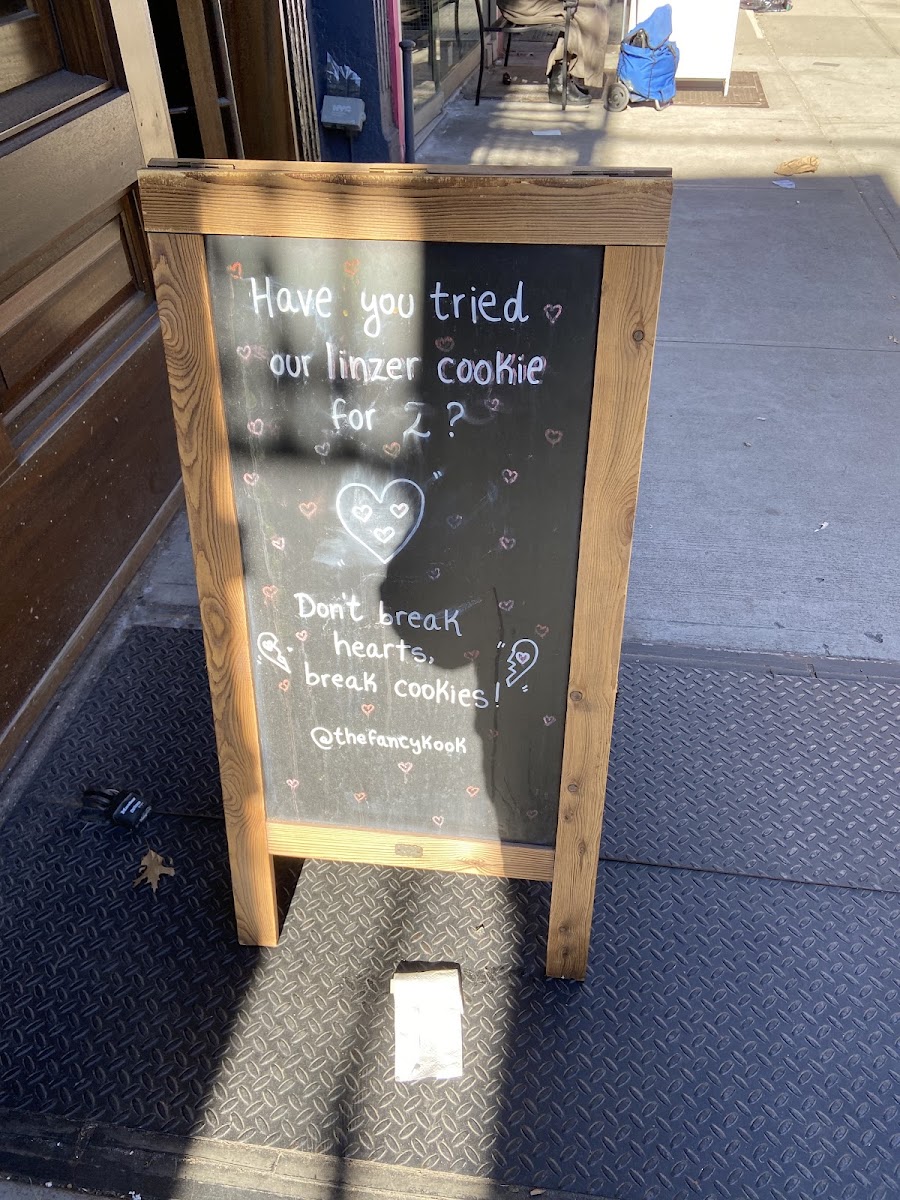 Have you tried
our linzer cookie
for 2 ?
Don't break
hearts,
break cookies!
@thefancykook